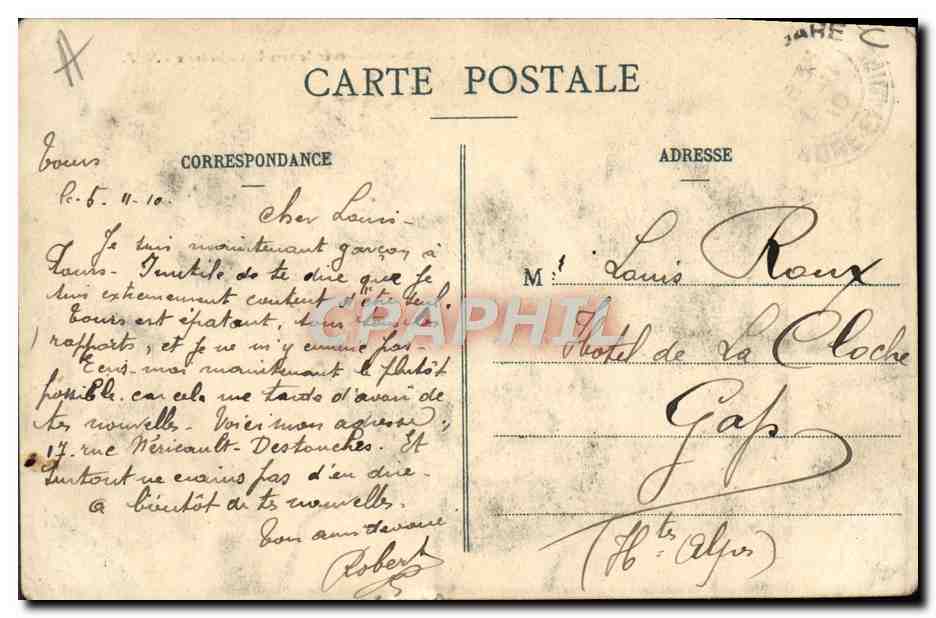 CARTE POSTALE
CORRESPONDANCE
Tours
le 6. 11-10.
Cher Louis -
Je suis maintenant garçon à
Tours - Inutile de te dire que je
suis extremement content d'être seul.
Tours est épatant, sous tous les
rapports, et je ne m'y ennuie pas -
Ecris-moi maintenant le plutôt
possible. car cela me tarde d'avoir de
tes nouvelles - Voici mon adresse :
17 rue Néricault-Destouches. Et
surtout ne crains pas d'en dire -
A bientôt de tes nouvelles.
Ton ami dévoué
Robert
ADRESSE
M. Louis Roux
Hotel de La Cloche
Gap
(Htes Alpes)
CPAPHIL
GARE